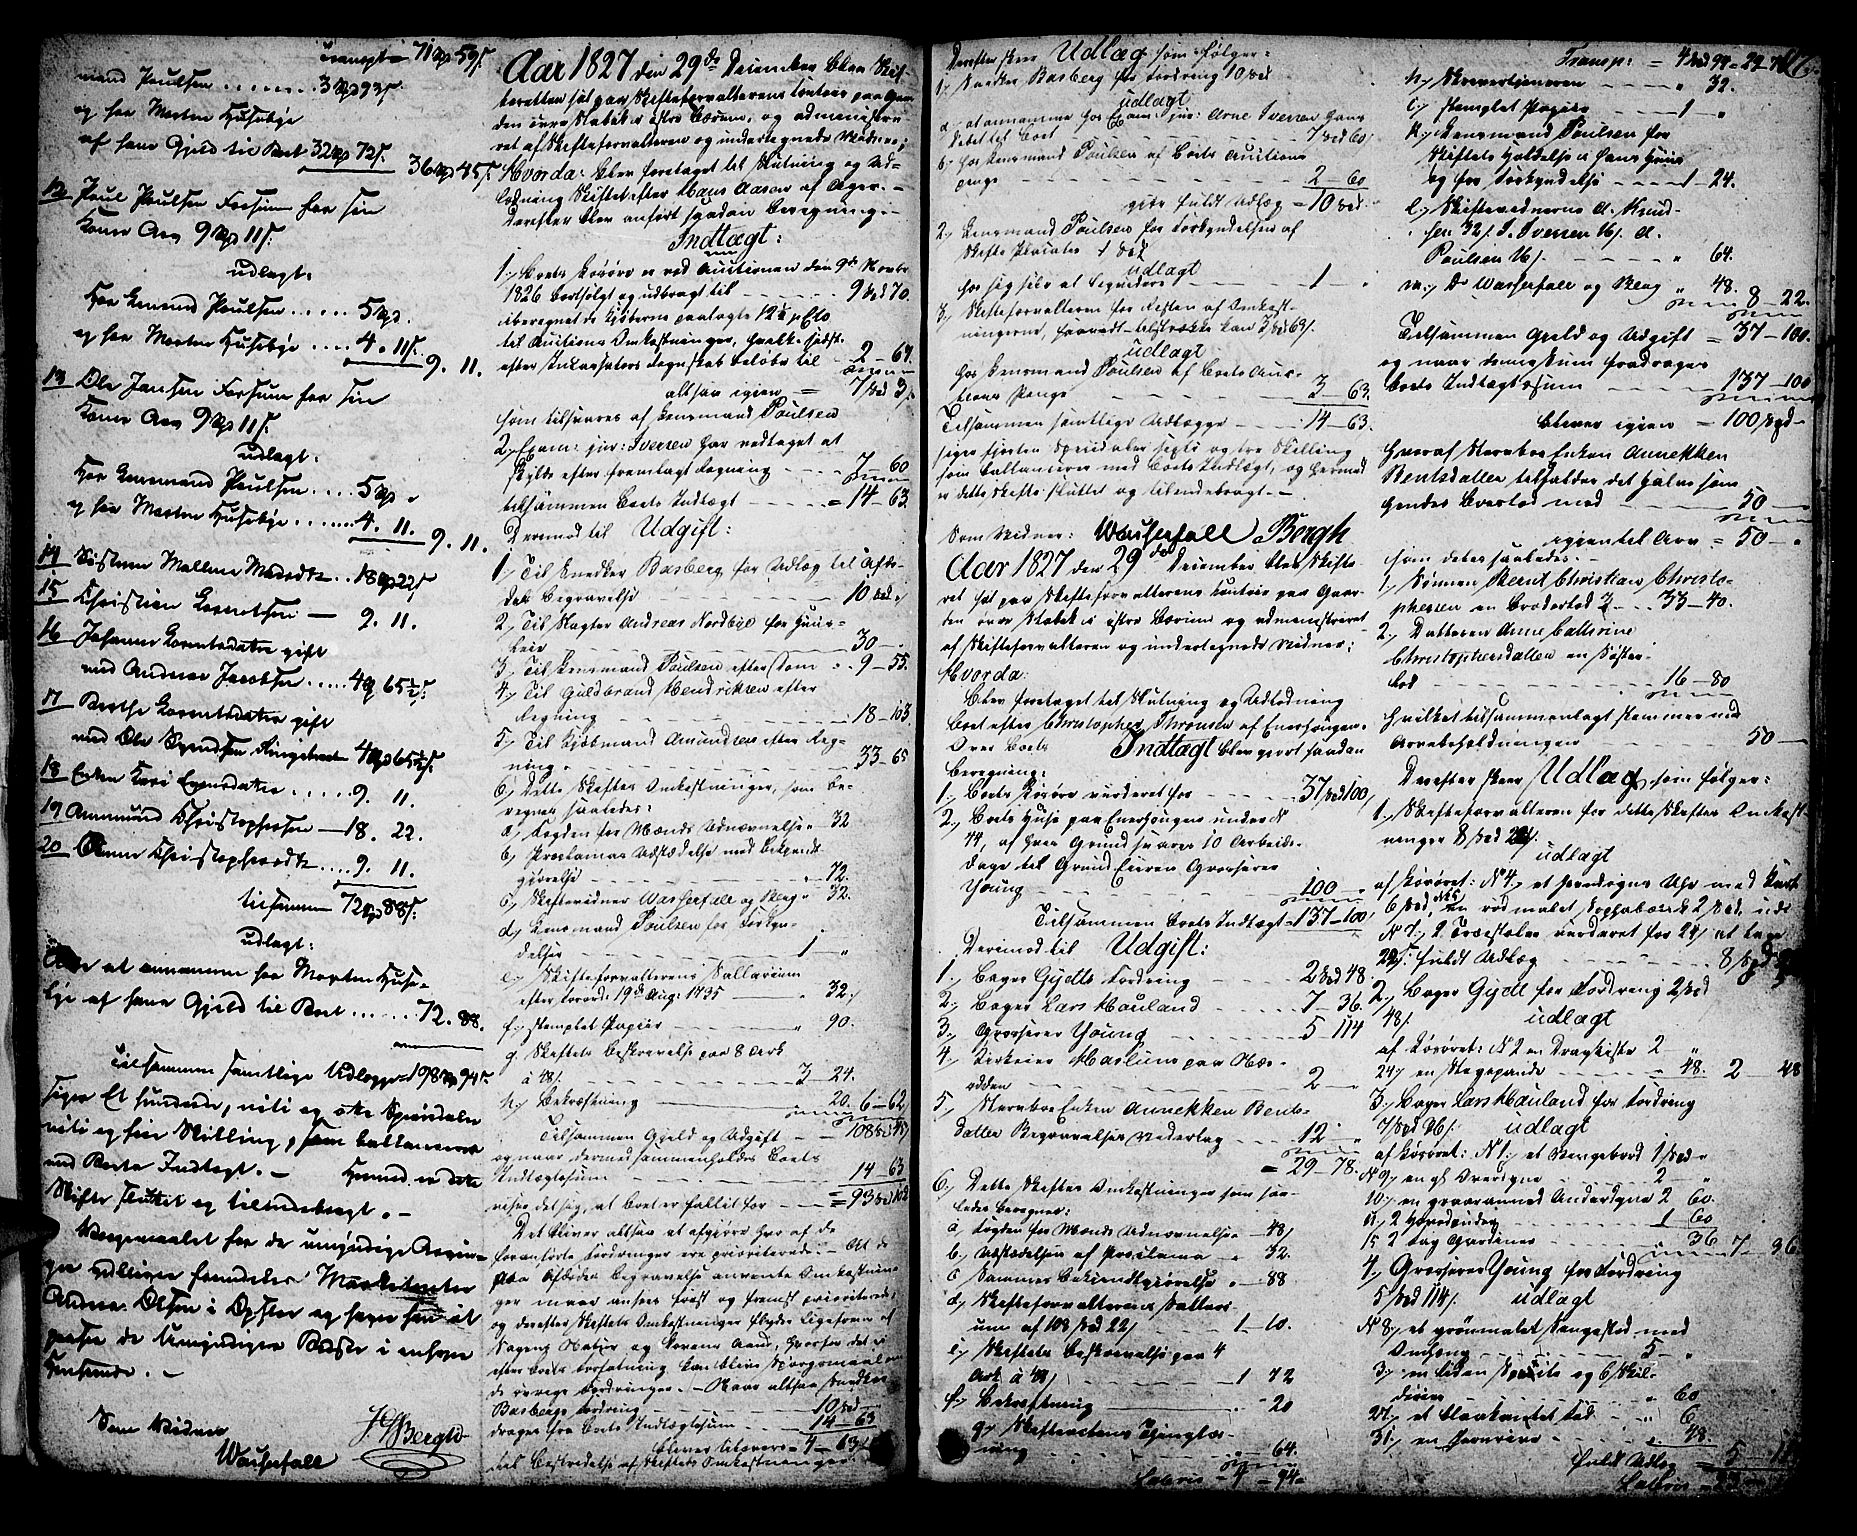 Transpt = 71 Spd 59 s.
mand Paulsen ........ 3 Spd 93 s.
og hos Morten Husebye
af hans Gjeld til Boet 32 Spd 72 s.
36 Spd 45 s.
12 Poul Poulsen Forsum for sin
Kones Arv 9 Spd 11 s.
udlagt:
Hos Lensmd Poulsen ...... 5 Spd.
og hos Morten Husebye ..... 4. 11 s.
9. 11.
13 Ole Jansen Forsum for sin
Kones Arv 9 Spd 11 s.
udlagt.
Hos Lensmand Poulsen .... 5 Spd
og hos Morten Husebye ....... 4. 11.
9. 11.
14 Søsteren Mallene .. 18 Spd 22 s.
15 Christian Lorentsen — 9. 11.
16 Johanne Lorentsdatter gift
med Andreas Jacobsen ..... 4 Spd 65½ s.
17 Berthe Lorentsdatter gift
med Ole Svendsen 4 Spd 65½ s.
18 Enken Kari Evensdatter ..... 9. 11.
19 Ammund Christophersen — 18. 22.
20 Anne Christophersdtr .... 9. 11.
tilsammen 72 Spd 88 s.
udlagt:
at annamme hos Morten Huse-
bye af hans Gjeld til Boet ....... 72. 88.
Tilsammen samtlige Udlægge = 198 Spd 94 s.
siger Et hundrede, niti og otte Speciedaler
niti og fire Skilling, som ballancerer
med Boets Indtægt. — Hermed er dette
Skifte sluttet og tilendebragt. —
Værgemaalet for de umyndige Arvin-
ger
Andreas Olsen i og
de Umyndiges Bedste i enhver
Henseende. —
Som Vidner
Wasserfall
JGBergh

Aar 1827 den 29de December blev Skif-
teretten sat paa Skifteforvalterens Contoir paa Gaar-
den øvre Stabek i østre Bærum, og administre-
ret af Skifteforvalteren og undertegnede Vidner;
Hvorda: blev foretaget til Slutning og Ud-
lodning Skiftet efter Hans Aasen af Ager. —
Derefter blev anført saadan Beregning. —
Indtægt:
1., Boets Løsøre er ved Auctionen den 9de Novbr
1826 bortsolgt og udbragt til — 9 Sed 70.
iberegnet de Kjøberne paalagte 12½ pCto
til Auctions Omkostninger, hvilke sidst
efter Incassators Regnskab beløbe til — 2 — 67.
altsaa igien = 7 Sed 3/
som tilsvares af Lensmand Poulsen
2., Exam: jur: Iversen har vedtaget at
skylde efter fremlagt Regning — 7 — 60
tilsammen Boets Indtægt — = 14 — 63.
Derimod til Udgift:
1., Til Snedker Basberg for Udlæg til Afdø-
des Begravelse — 10 Sed „
2., Til Slagter Andreas Nordbye for Huus-
leie — 30 — „
3., Til Lensmand Poulsen efter Dom „ 9 — 55.
4., Til Guldbrand Hendriksen efter
Regning — 18 — 103.
5., Til Kjøbmand Amundsen efter Reg-
ning. — 33 — 65
6., Dette Skiftes Omkostninger, som be-
regnes saaledes:
a., Fogden for Mænds Udnævnelse „ 32
b., Proclamas Udstædelse med Bekjendt-
giørelse — „ 72.
c., Skiftevidner Wasserfall og Berg „ 32.
d., Lensmand Poulsen for Forkyn-
delser — 1 — „
e., Skifteforvalterens Sallarium
efter Forord: 19de Aug: 1735 — „ 32./
f., stemplet Papier — „ 90.
g. Skiftets Beskrivelse paa 8 Ark
à 48/. — 3 24.
h., Bekræftning — 20. 6 — 62/
Tilsammen Gjeld og Udgift — = 108 Sed
og naar dermed sammenholdes Boets
Indtægtssum — 14 — 63
viser det sig, at Boet er fallit for — = 93 Sed 102
Det bliver altsaa at afgjøre hvo af de
foranførte Fordringer ere prioriterede: — At de
paa Afdødes Begravelse anvendte Omkostnin-
ger maae ansees først og fremst prioriterede
og derefter Skiftets Omkostninger flyder ligefrem af
Sagens Natur og Lovens Aand, hvorfor det
efter Boets Forfatning kan blive Spørgsmaal om
de øvrige Fordringer. — Naar altsaa Snedker
Basbergs Fordring — 10 Sed —
drages fra Boets Indtægtssum — 14 — 63
bliver tilovers = 4 — 63
til Bestridelse af Skiftets Omkostninger.

Derefter skeer Udlæg som følger:
1., Snedker Basberg for Fordring 10 Sed
udlagt
a., at annamme hos Exam: jur: Arne Iversen hans
Gield til Boet — 7 Sed 60/
b., hos Lensmand Poulsen af Boets Auctions
penge — 2 — 60
giør fuldt Udlæg = 10 Sed —
2., Lensmand Poulsen for Forkyndelsen af
Skifte Placater 1 Sed
udlagt
hos sig selv at — 1 — „
3., Skifteforvalteren for Resten af Omkost-
ningerne, saavidt tilstrække kan 3 Sed 63/.
udlagt
hos Lensmand Poulsen af Boets Auc-
tions Penge — 3 — 63.
Tilsammen samtlige Udlægge — 14 — 63.
siger fjorten Speciedaler seexti og tre Skilling
som ballancerer med Boets Indtægt, og hermed
er dette Skifte sluttet og tilendebragt. —
Som Vidner: Wasserfall Bergh
Aar 1827 den 29de December blev Skifte-
ret sat paa Skifteforvalterens Contoir paa Gaar-
den øvre Stabek i østre Bærum og administreret
af Skifteforvalteren og undertegnede Vidner;
Hvorda:
blev foretaget til Slutning og Udlodning
Boet efter Christopher Thronsen af Enerhougen.
Over Boets Indtægt blev giort saadan
Beregning:
1., Boets Løsøre vurderet for — 37 Sed 100/
2., Boets Huus paa Enerhougen under N
44, af hvis Grund svares 10 Arbeids-
dage til Grund Eieren Grosserer
Young — 100 — „
Tilsammen Boets Indtægt = 137 — 100/
Derimod til Udgift:
1., Bager Gjedts Fordring — 2 Sed 48.
2., Bager Lars Houland — 7 — 36.
3., Grosserer Young — 5 — 114
4., Kirkeier Maslum paa Næs-
odden — 2 — „
5., Stervboe Enken Annekken Bents-
datter Begravelses Vederlag — 12 — „
= 29 — 78.
6., Dette Skiftes Omkostninger som saa-
ledes beregnes:
a., Fogden for Mænds Udnævnelse — 48/
b., Udstædelsen af Proclama — „ 32.
c., Sammes Bekiendtgiørelse „ — 88
d., Skifteforvalterens Sallari-
um af 108 Sed 22/ — 1 — 10.
e., Skiftets Beskrivelse paa 4
Ark à 48/ — 1 72
f., Bekræftning — „ — 20
g., Skifterettens
— 64.
Lateris = 4 — 94 —

Transp: = 4 Sed 94 = 29 — 78
h., — „ 32.
i., stemplet Papiir — 1 — „
k., Lensmand Poulsen for
Skiftets Holdelse i hans Huus
og for Forkyndelse — 1 — 24.
l., Skiftevidnerne A. Knud-
sen 32/. I. Iversen 16/. A.
Poulsen 16/. — „ 64.
m., Do Wasserfall og Berg „ 48.
8 — 22.
Tilsammen Gield og Udgift = 37 — 100.
og naar denne Sum fradrages
Boets Indtægtssum — 137 — 100
bliver igien = 100 Spd —
Hvoraf Stervboe Enken Annekken
Bentsdatter tilfalder det halve som
hendes Boeslod med — 50 — „
igien til Arv = 50 — „
som deles saaledes: —
1., Sønnen Bernt Christian Christo-
phersen en Broderlod — 33 — 40.
2., Datteren Anne Cathrine
Christophersdatter en Søster-
lod — 16 — 80
hvilket tilsammenlagt stemmer med
Arvebeholdningen — 50 —
Derefter skeer Udlæg som følger:
1., Skifteforvalteren for dette Skiftes Omkost-
ninger 8 Sed 22/.
udlagt
af Løsøret: N 4., et Uhr med
6 Sed, en rødmalet 2 Sed,
N 7., 2 Træestole vurderet for 24/
22/. fuldt Udlæg — 8 Spd
2., Bager Gjedt for Fordring 2 Sed
48/. udlagt
af Løsøret: N 2 en Dragkiste 2 „
24., en Stegepande — 48. 2 — 48
3., Bager Lars Houland for Fordring
7 Sed 36/. udlagt
af Løsøret: N 1., et Slængebord 1 Sed „
N 9., en gl. Overdyne — 2 — „
10., en graarannet Underdyne 2 60.
11., 2 — 1 60
15 2 Fag Gardiner — 36. 7 — 36
4., Grosserer Young for Fordring
5 Sed 114/. udlagt
N 8., et grønmalet Sængested med
Omhæng — 5 — „
3., en liden og 6 Skil-
derier — „ 60
27., et Fad — „ 6
31., en — 48.
fuldt Udlæg — 5
Lateris —